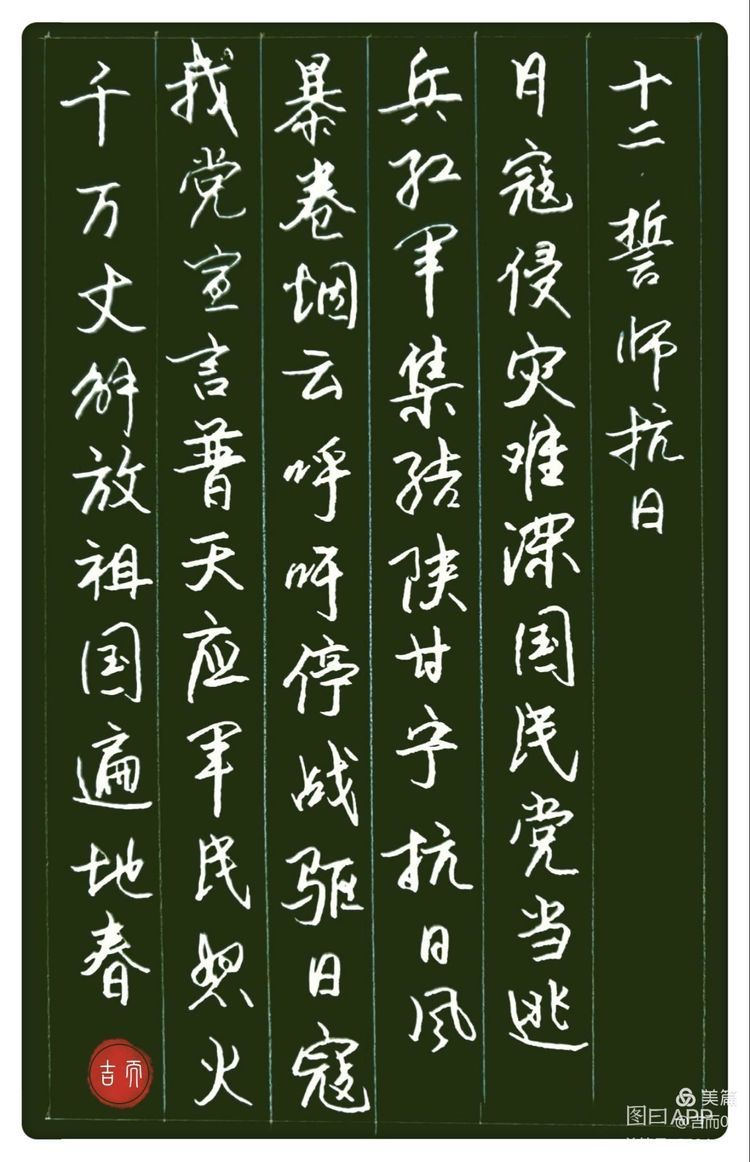 十二·誓师抗日
日寇侵灾难深国民党当逃
兵红军集结陕甘宁抗日风
暴卷烟云呼吁停战驱日寇
我党宣言普天应军民怒火
千万丈解放祖国遍地春
吉而
美篇
图曰APP
@吉而0